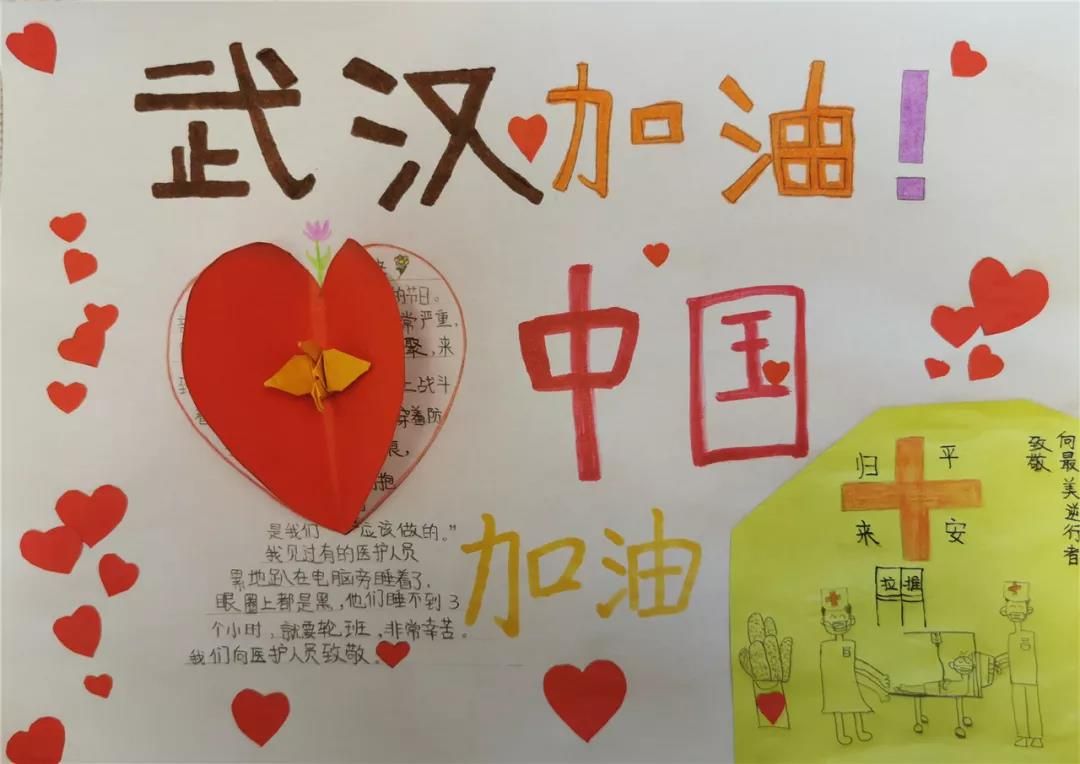 武汉加油!
的节日。
常严重,
聚,来
上战斗
穿着防
痕,
抱
是我们 应该做的。”
我见过有的医护人员
累地趴在电脑旁睡着了,
眼圈上都是黑,他们睡不到3
个小时,就要轮班,非常辛苦。
我们向医护人员致敬。
中国
加油
向最美逆行者
致敬
平安
归来
拉 推